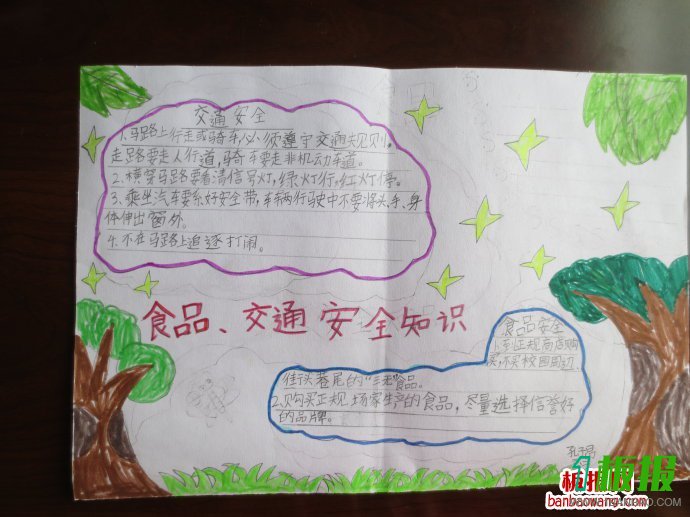 交通安全
1.马路上行走或骑车,必须遵守交通规则。
走路要走人行道,骑车要走非机动车道。
2.横穿马路要看清信号灯,绿灯行,红灯停。
3、乘坐汽车要系好安全带,车辆行驶中不要将头、手、身
体伸出窗外。
4.不在马路上追逐打闹。
食品、交通安全知识
食品安全
1.到正规商店购
买,不买校园周边、
街头巷尾的“三无”食品。
2.购买正规场家生产的食品,尽量选择信誉好
的品牌。
板报
banbaowang.com